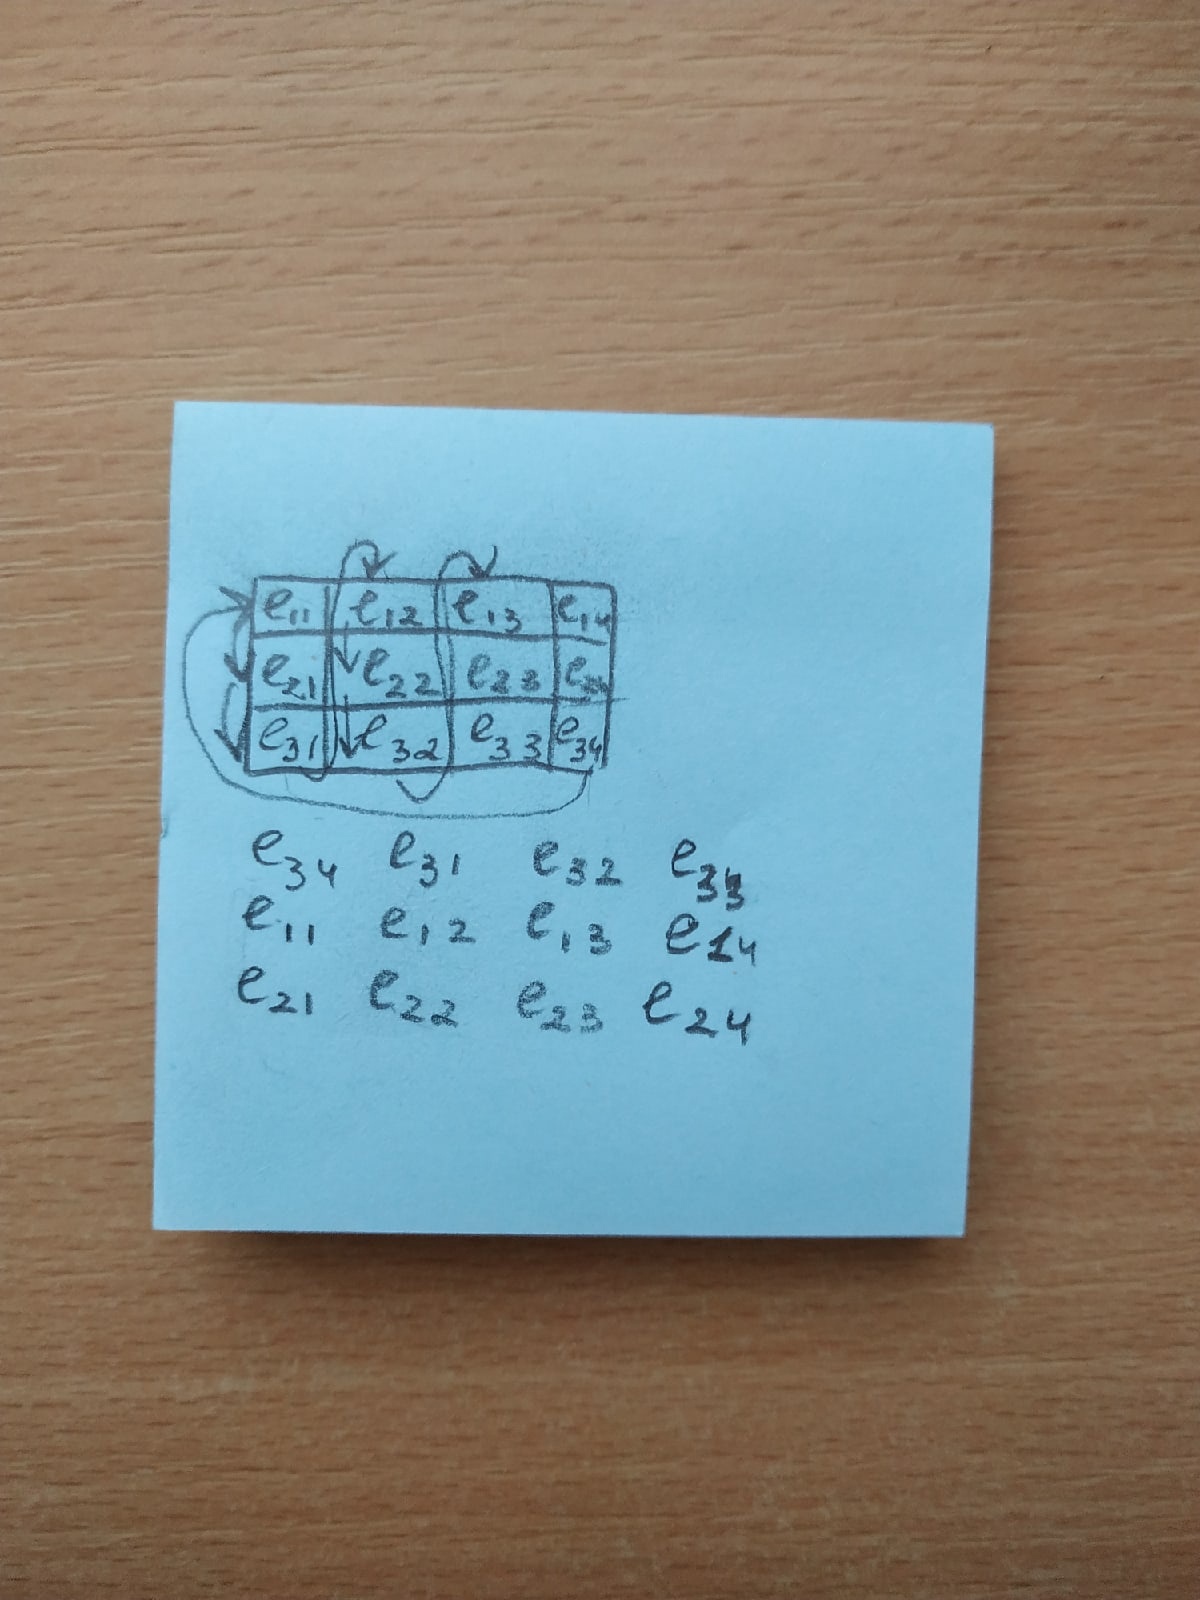 e11 e12 e13 e14
e21 e22 e23 e24
e31 e32 e33 e34
e34 e31 e32 e33
e11 e12 e13 e14
e21 e22 e23 e24